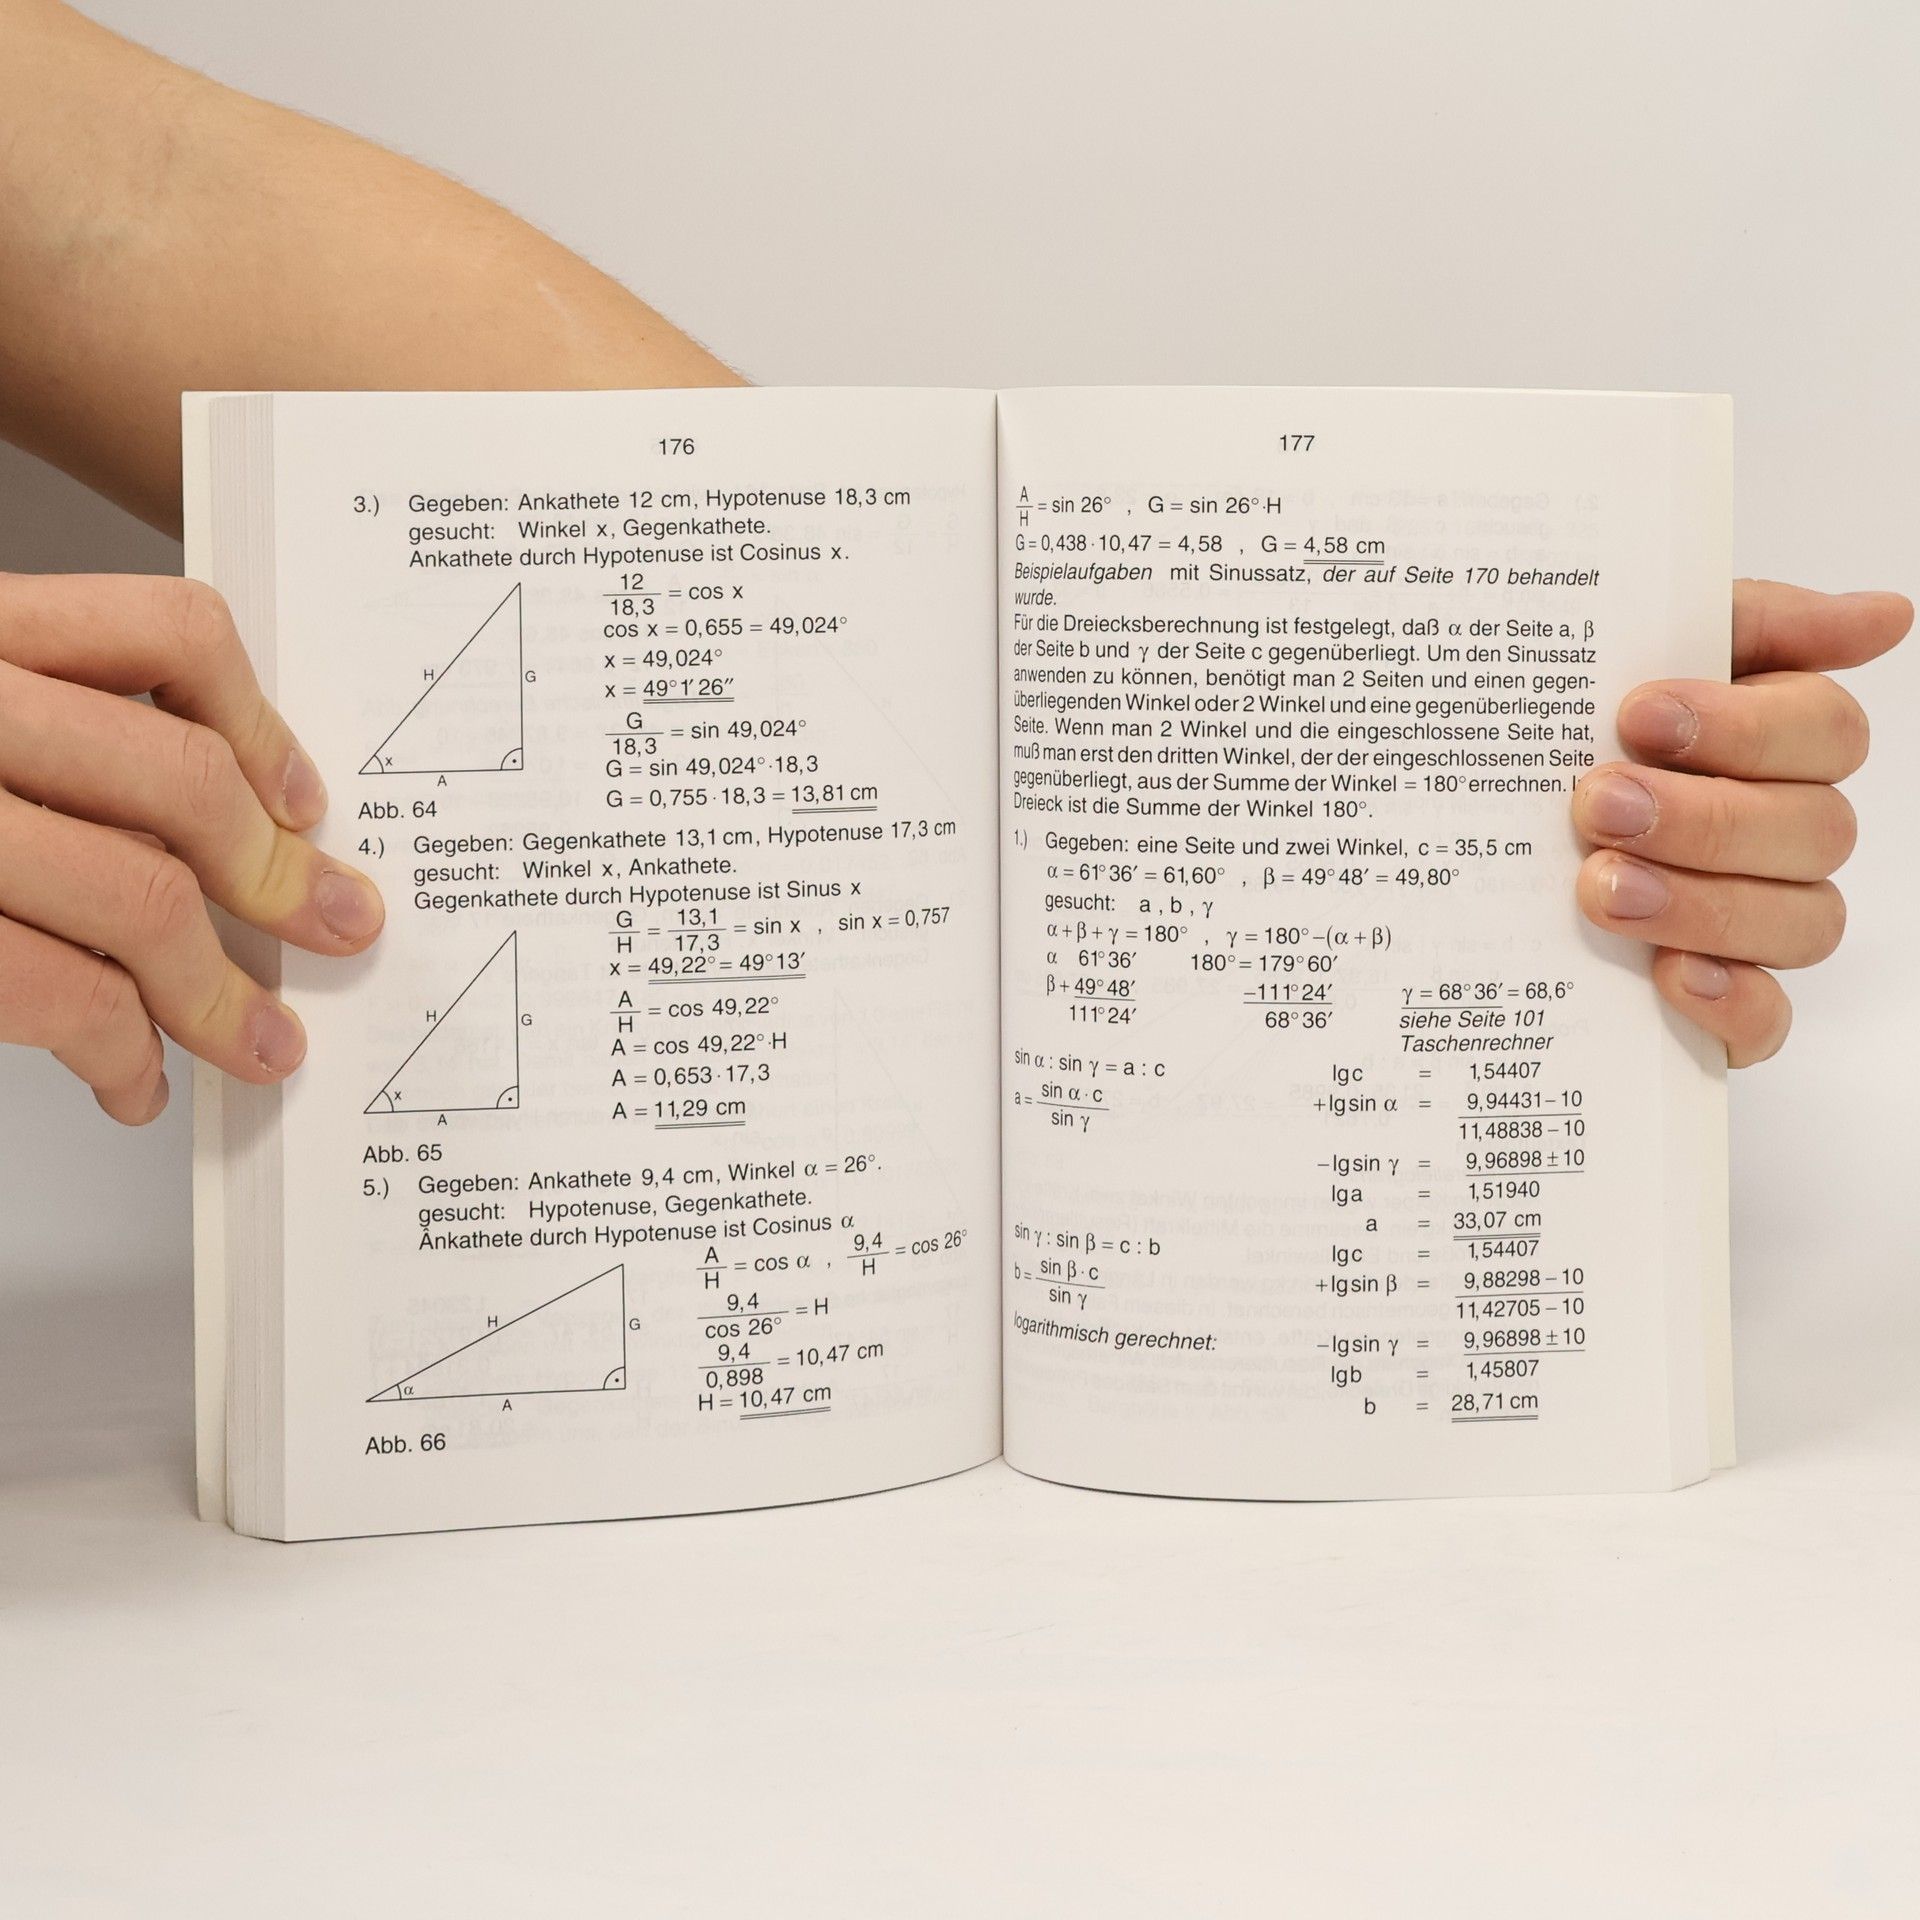 176
3.) Gegeben: Ankathete 12 cm, Hypotenuse 18,3 cm
gesucht: Winkel x, Gegenkathete.
Ankathete durch Hypotenuse ist Cosinus x.
12/18,3 = cos x
cos x = 0,655 = 49,024°
x = 49,024°
x = 49° 1′ 26″
G/18,3 = sin 49,024°
G = sin 49,024° · 18,3
G = 0,755 · 18,3 = 13,81 cm
H
G
x
A
Abb. 64
4.) Gegeben: Gegenkathete 13,1 cm, Hypotenuse 17,3 cm
gesucht: Winkel x, Ankathete.
Gegenkathete durch Hypotenuse ist Sinus x
G/H = 13,1/17,3 = sin x , sin x = 0,757
x = 49,22° = 49° 13′
A/H = cos 49,22°
A = cos 49,22° · H
A = 0,653 · 17,3
A = 11,29 cm
H
G
x
A
Abb. 65
5.) Gegeben: Ankathete 9,4 cm, Winkel α = 26°.
gesucht: Hypotenuse, Gegenkathete.
Ânkathete durch Hypotenuse ist Cosinus α
A/H = cos α , 9,4/H = cos 26°
9,4/cos 26° = H
9,4/0,898 = 10,47 cm
H = 10,47 cm
H
G
α
A
Abb. 66
177
A/H = sin 26° , G = sin 26° · H
G = 0,438 · 10,47 = 4,58 , G = 4,58 cm
Beispielaufgaben mit Sinussatz, der auf Seite 170 behandelt
wurde.
Für die Dreiecksberechnung ist festgelegt, daß α der Seite a, β
der Seite b und γ der Seite c gegenüberliegt. Um den Sinussatz
anwenden zu können, benötigt man 2 Seiten und einen gegen-
überliegenden Winkel oder 2 Winkel und eine gegenüberliegende
Seite. Wenn man 2 Winkel und die eingeschlossene Seite hat,
muß man erst den dritten Winkel, der der eingeschlossenen Seite
gegenüberliegt, aus der Summe der Winkel = 180° errechnen.
Dreieck ist die Summe der Winkel 180°.
1.) Gegeben: eine Seite und zwei Winkel, c = 35,5 cm
α = 61° 36′ = 61,60° , β = 49° 48′ = 49,80°
gesucht: a , b , γ
α + β + γ = 180° , γ = 180° – (α + β)
α 61° 36′ 180° = 179° 60′
β + 49° 48′ –111° 24′ γ = 68° 36′ = 68,6°
111° 24′ 68° 36′ siehe Seite 101
Taschenrechner
sin α : sin γ = a : c lg c = 1,54407
a = sin α · c/sin γ +lg sin α = 9,94431 – 10
11,48838 – 10
–lg sin γ = 9,96898 ± 10
lg a = 1,51940
a = 33,07 cm
sin γ : sin β = c : b lg c = 1,54407
b = sin β · c/sin γ +lg sin β = 9,88298 – 10
11,42705 – 10
logarithmisch gerechnet: –lg sin γ = 9,96898 ± 10
lg b = 1,45807
b = 28,71 cm